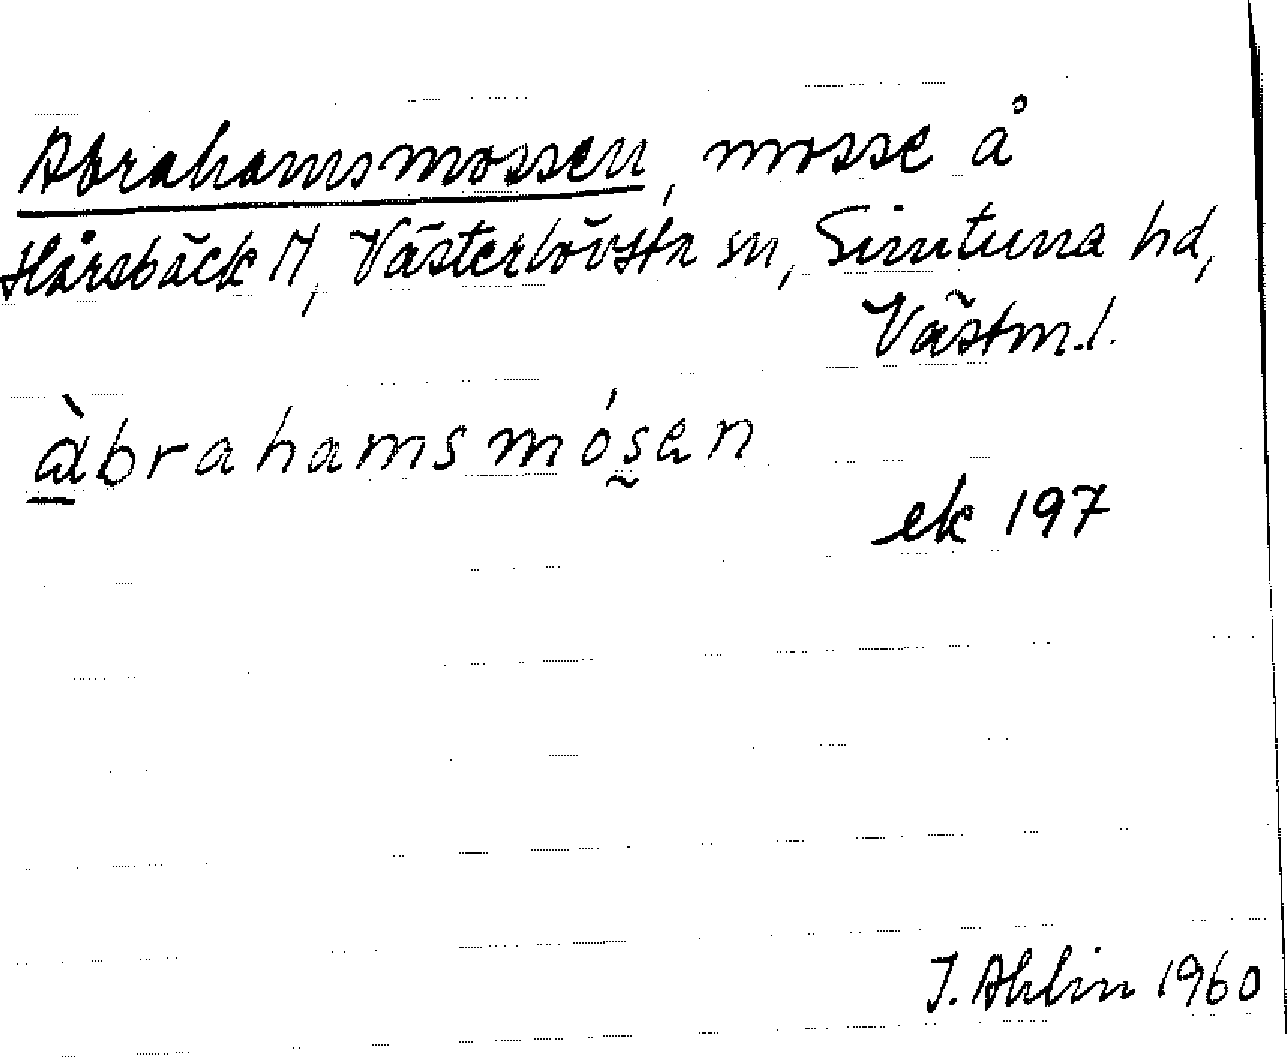 Abrahamsmossen, mosse å
Hårsbäck M, Västerlövsta sn, Simtuna hd,
Västm.l.
àbrahamsmósen
ek 197
J. Ahlin 1960